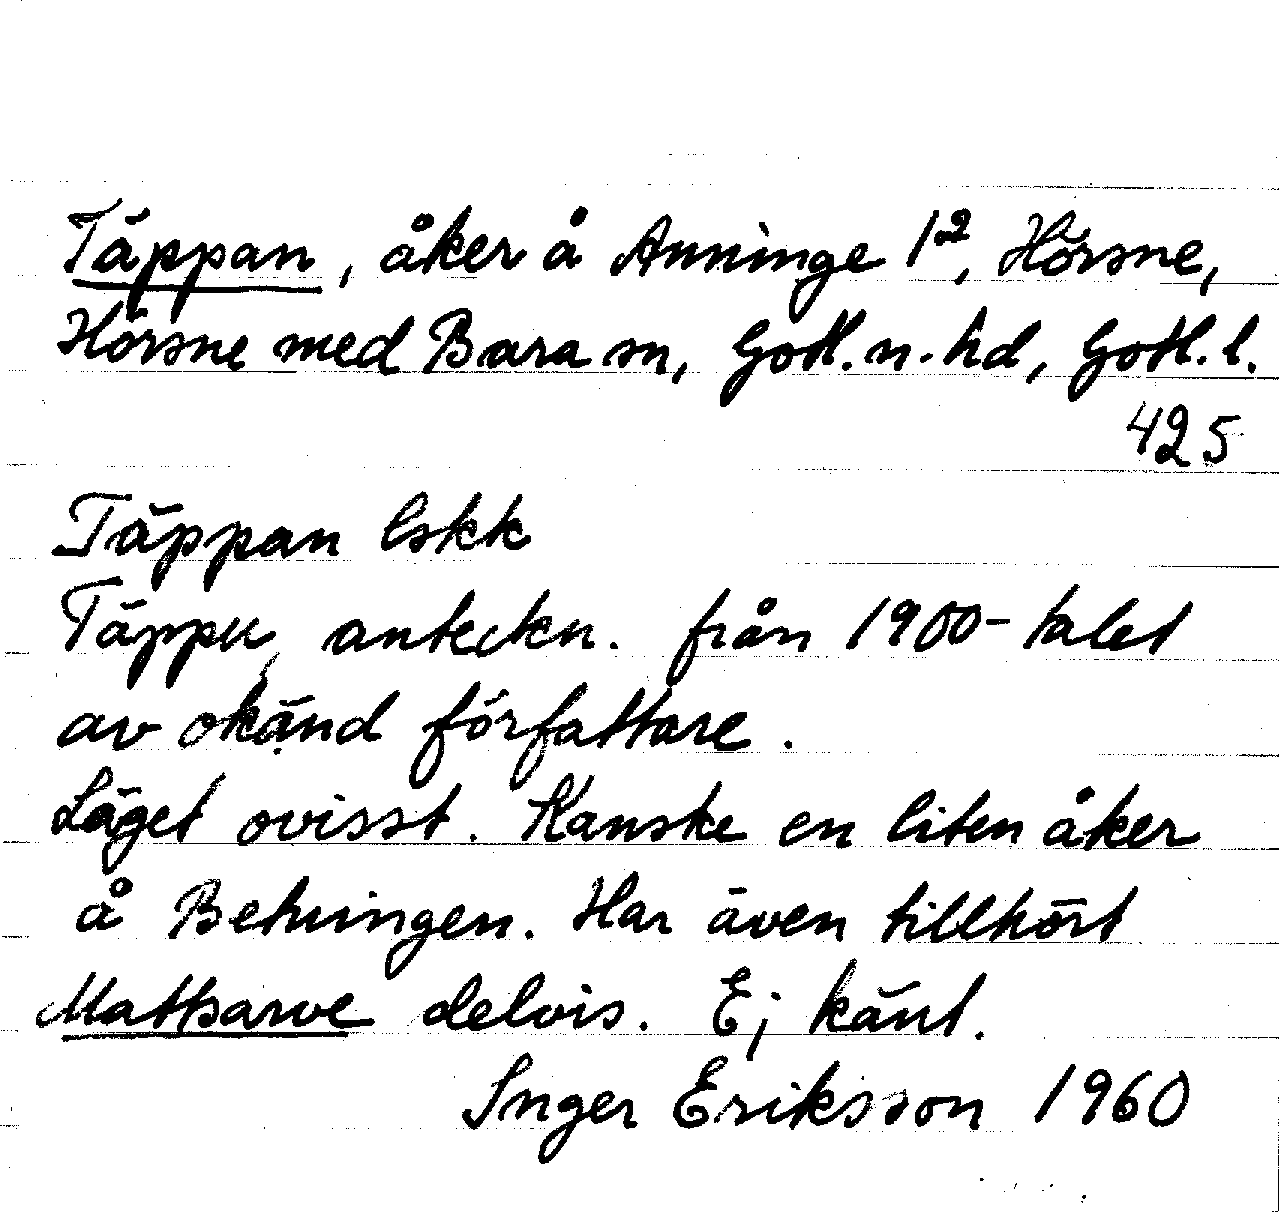 Täppan, åker å Anninge 1², Hörsne,
Hörsne med Bara sn, Gotl. n. hd, Gotl. l.
425
Täppan lskk
Täppu, anteckn. från 1900-talet
av okänd författare.
Läget ovisst. Kanske en liten åker
å Betningen. Har även tillhört
Mattsarve delvis. Ej känt.
Inger Eriksson 1960